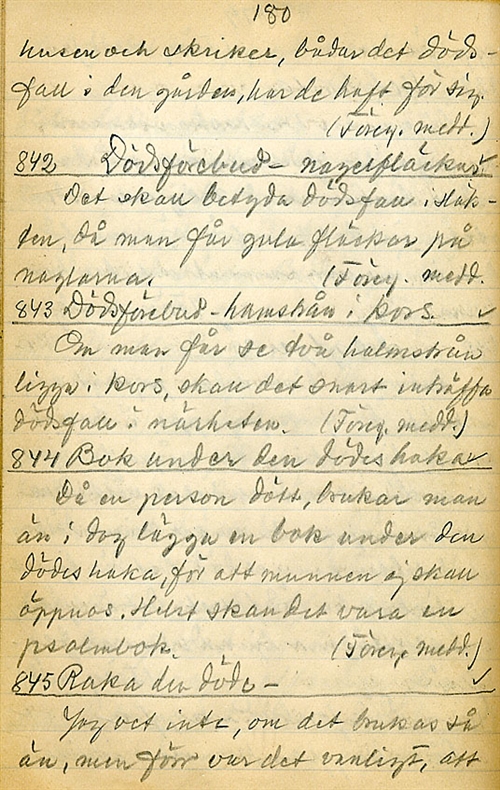 180
husen och skriker, bådar det döds-
fall i den gården, har de haft för sig.
(Föreg. medd.)
842 Dödsförebud - nagelfläckar.
Det skall betyda dödsfall i släk-
ten, då man får gula fläckar på
naglarna. (Föreg. medd.
843 Dödsförebud - halmstrån i kors.
Om man får se två halmstrån
ligga i kors, skall det snart inträffa
dödsfall i närheten. (Föreg. medd.)
844 Bok under den dödes haka
Då en person dött, brukar man
än i dag lägga en bok under den
dödes haka, för att munnen ej skall
öppnas. Helst skall det vara en
psalmbok. (Föreg. medd.)
845 Raka den döde -
Jag vet inte, om det brukas så
än, men förr var det vanligt, att